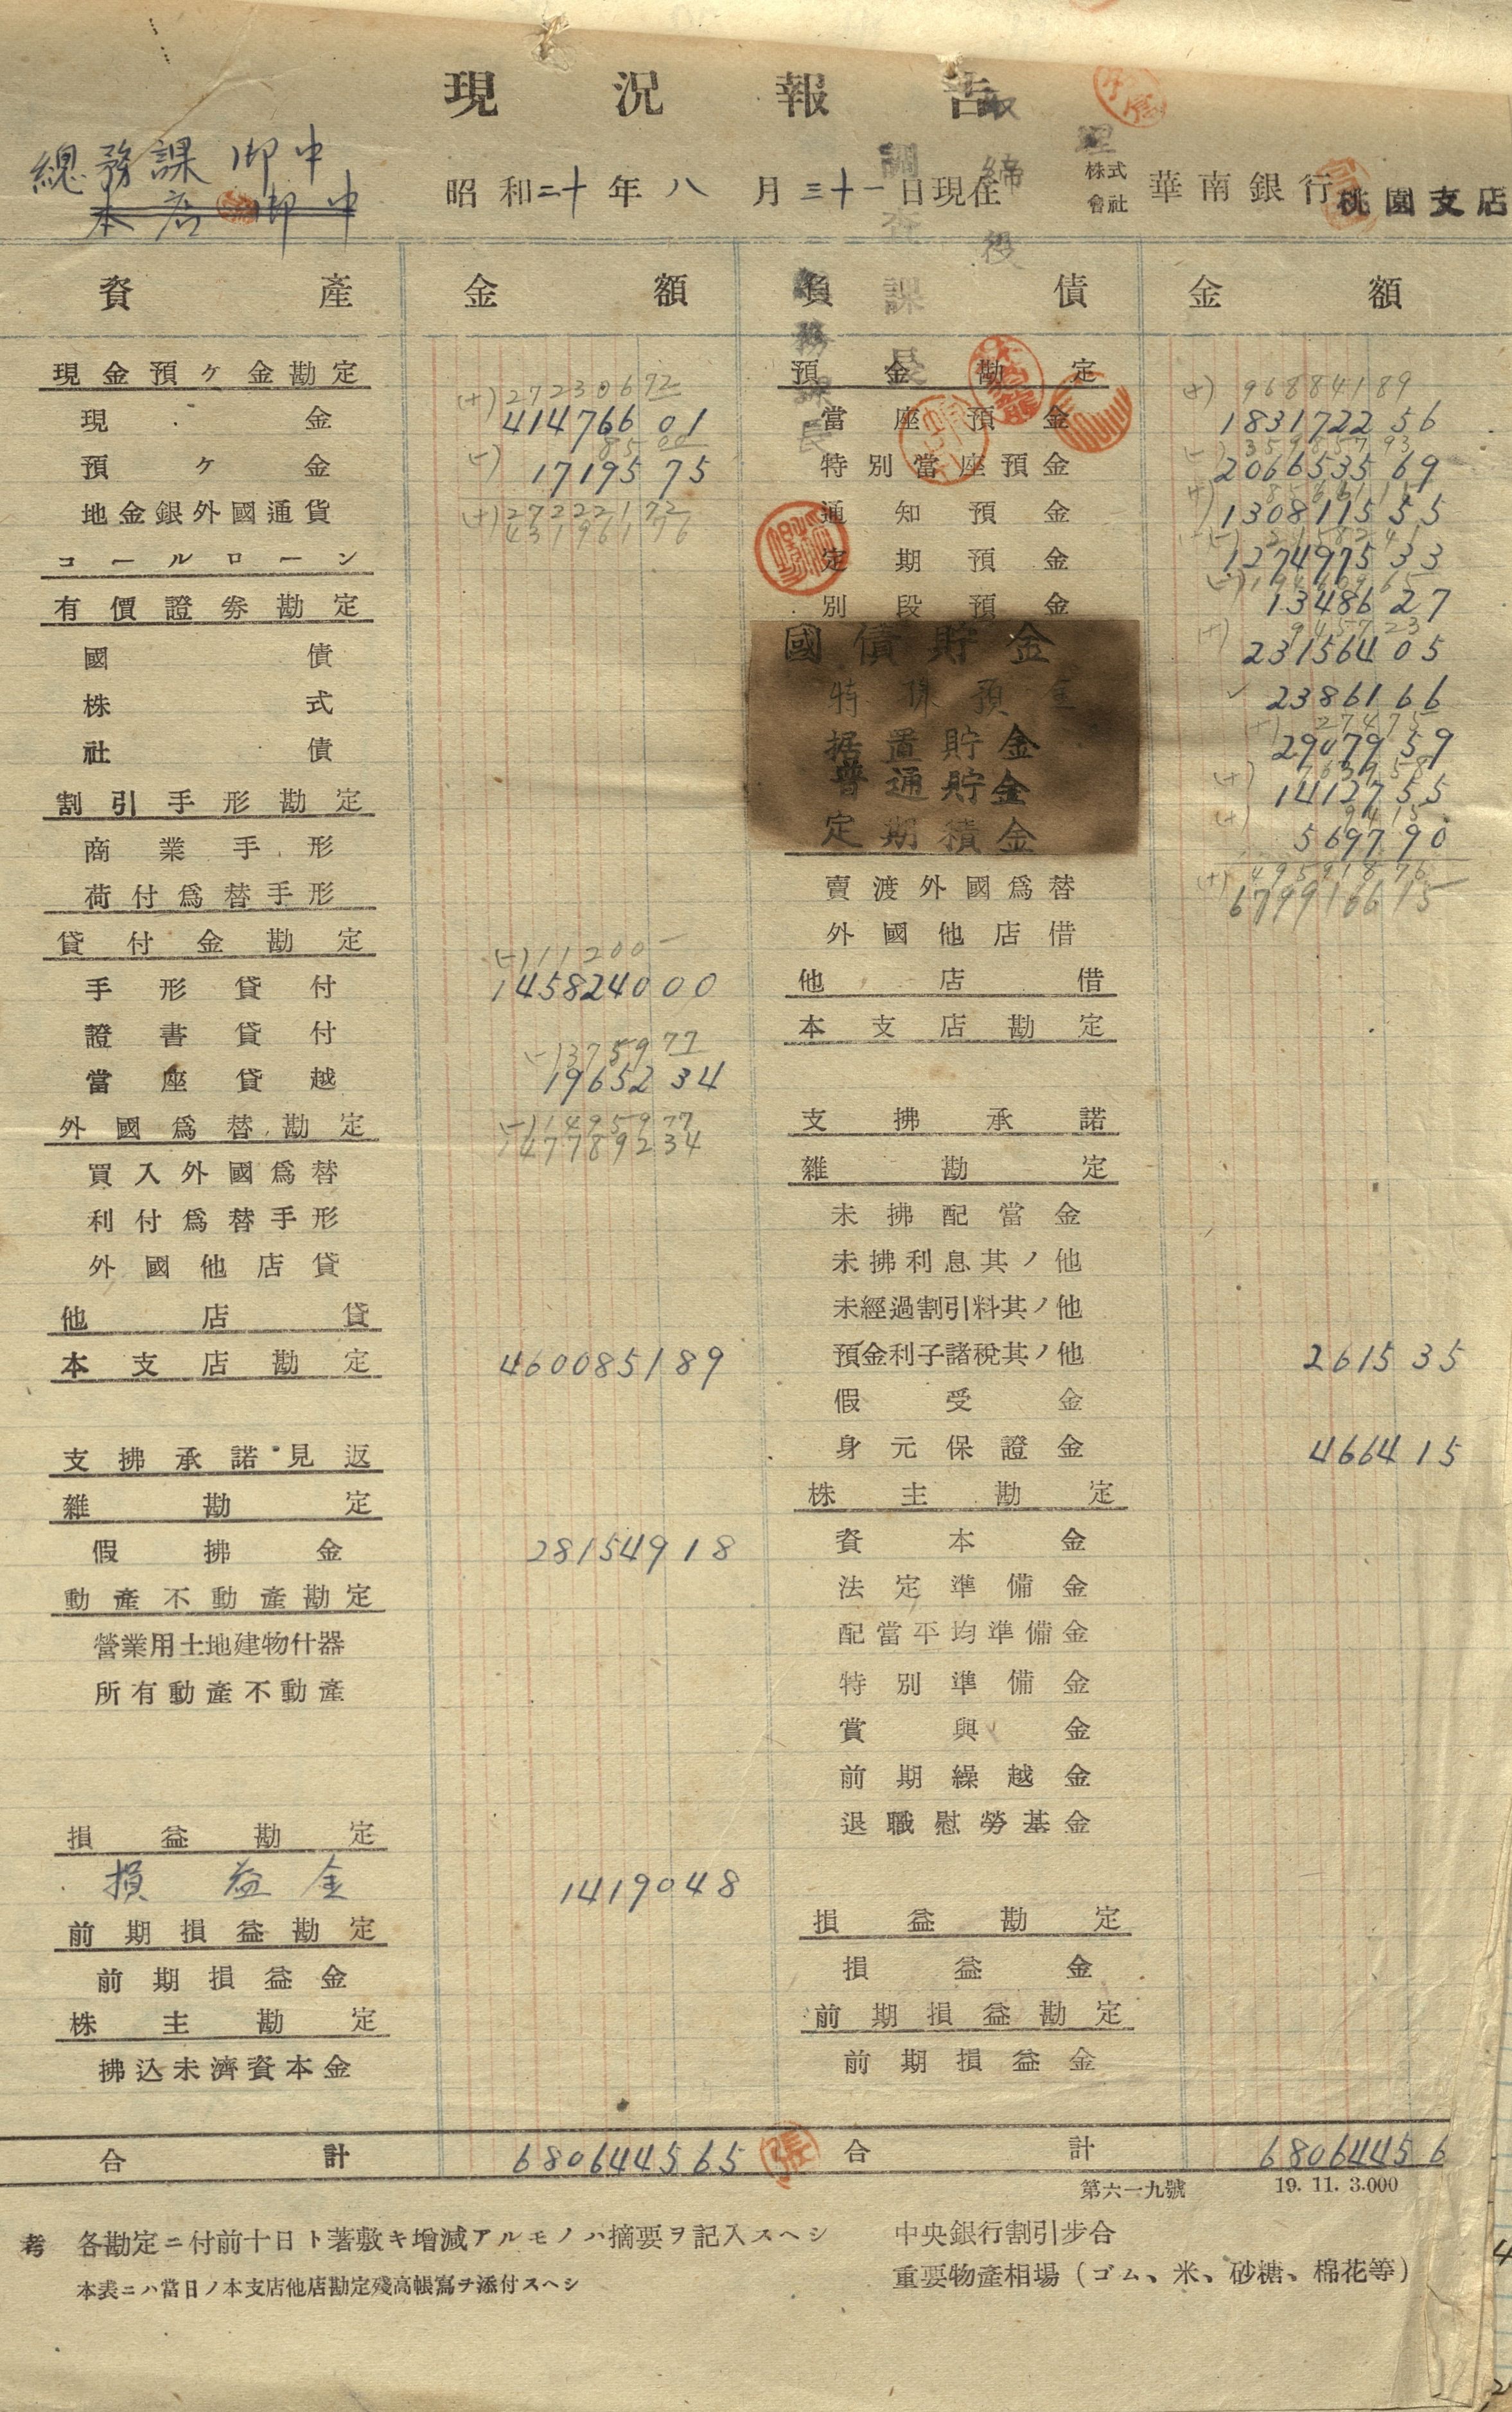 現況報告
總務課御中
本店御中
昭和二十年八月三十一日現在
株式會社 華南銀行 桃園支店
取締役
調査課長
總務課長
資產 金額 負債 金額
現金預ケ金勘定
(+) 27230692
現金 414766 01
(-) 85 00
預ケ金 17195 75
地金銀外國通貨 (+) 27222192
431961 76
コールローン
有價證劵勘定
國債
株式
社債
割引手形勘定
商業手形
荷付爲替手形
貸付金勘定
(-) 11200 -
手形貸付 1458240 00
證書貸付
(-) 3759 77
當座貸越 19652 34
外國爲替勘定 (-) 14959 77
1477892 34
買入外國爲替
利付爲替手形
外國他店貸
他店貸
本支店勘定 4600851 89
支拂承諾見返
雜勘定
假拂金 281549 18
動產不動產勘定
營業用土地建物什器
所有動產不動產
損益勘定
損益金 14190 48
前期損益勘定
前期損益金
株主勘定
拂込未濟資本金
合計 6806445 65
預金勘定
(+) 968841 89
當座預金 1831722 56
(-) 359857 93
特別當座預金 2066535 69
通知預金 1308115 55
定期預金 1274975 33
別段預金 13486 27
(+) 9457 23
國債貯金 231564 05
特殊預金 23861 66
(+) 274 75
据置貯金 29079 59
普通貯金 14127 55
定期積金 5697 90
(+) 495918 76
賣渡外國爲替 6799166 15
外國他店借
他店借
本支店勘定
支拂承諾
雜勘定
未拂配當金
未拂利息其ノ他
未經過割引料其ノ他
預金利子諸稅其ノ他 2615 35
假受金
身元保證金 4664 15
株主勘定
資本金
法定準備金
配當平均準備金
特別準備金
賞與金
前期繰越金
退職慰勞基金
損益勘定
損益金
前期損益勘定
前期損益金
合計 6806445 6
第六一九號 19. 11. 3.000
考 各勘定ニ付前十日ト著敷キ增減アルモノハ摘要ヲ記入スヘシ
本表ニハ當日ノ本支店他店勘定殘高帳寫ヲ添付スヘシ
中央銀行割引步合
重要物產相場（ゴム、米、砂糖、棉花等）